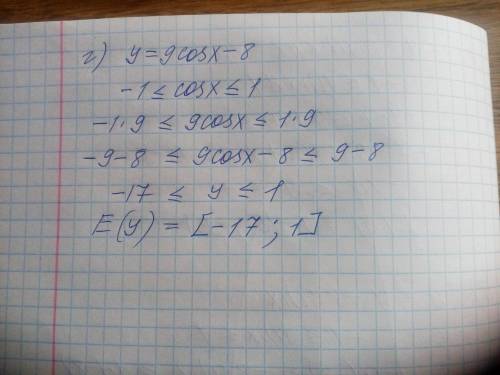 г) y = 9cosx - 8
-1 ≤ cosx ≤ 1
-1·9 ≤ 9cosx ≤ 1·9
-9-8 ≤ 9cosx - 8 ≤ 9-8
-17 ≤ y ≤ 1
E(y) = [-17; 1]